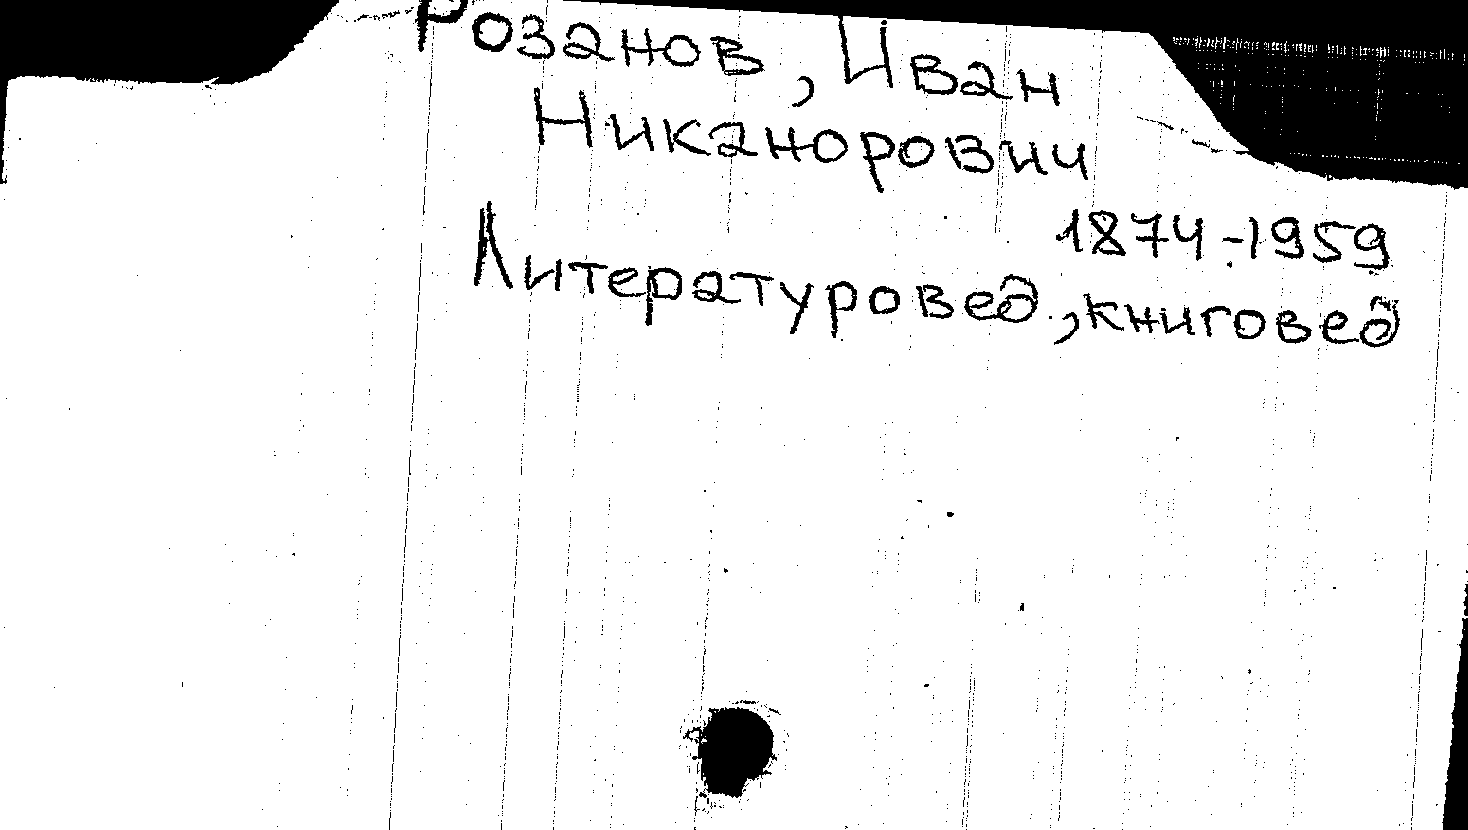 Розанов, Иван
Никанорович
1874-1959
Литературовед, книговед